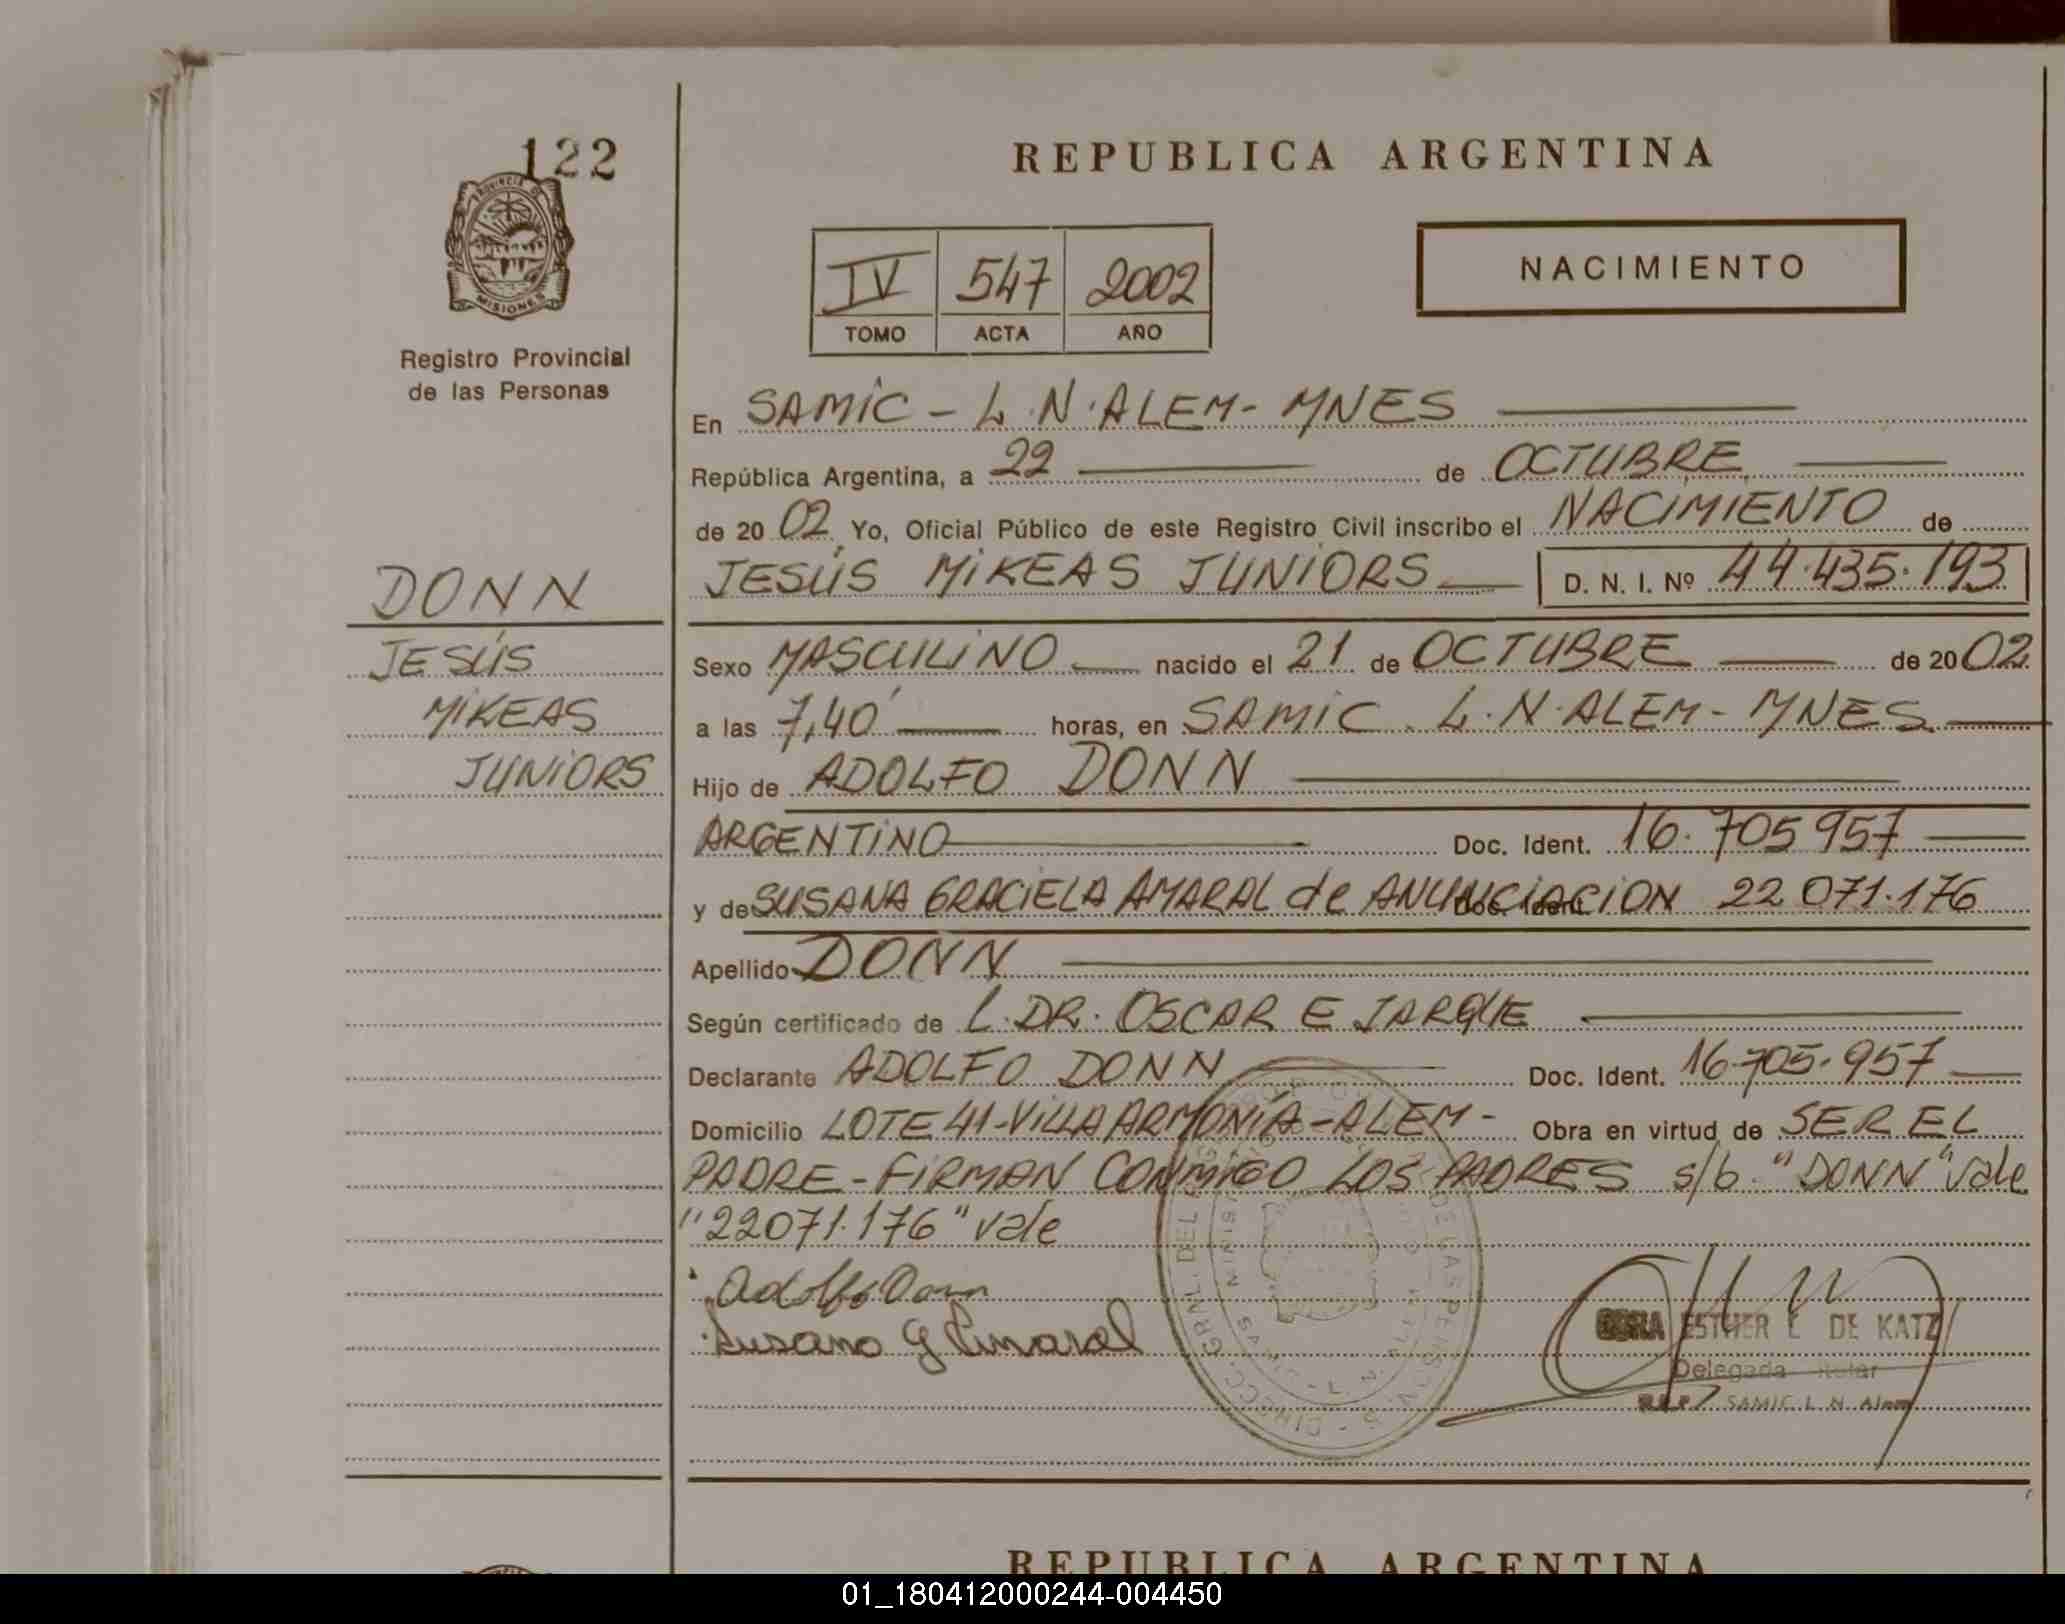 122
REPUBLICA ARGENTINA
PROVINCIA DE
MISIONES
Registro Provincial
de las Personas
IV 547 2002
TOMO ACTA AÑO
NACIMIENTO
En SAMIC - L.N.ALEM - MNES
República Argentina, a 22 de OCTUBRE
de 20 02 Yo, Oficial Público de este Registro Civil inscribo el NACIMIENTO de
JESÚS MIKEAS JUNIORS D. N. I. Nº 44.435.193
DONN
JESÚS
MIKEAS
JUNIORS
Sexo MASCULINO nacido el 21 de OCTUBRE de 20 02
a las 7,40 horas, en SAMIC. L.N.ALEM - MNES
Hijo de ADOLFO DONN
ARGENTINO Doc. Ident. 16.705957
y de SUSANA GRACIELA AMARAL de ANUNCIACION Doc. Ident. 22 071.176
Apellido DONN
Según certificado de L.DR. OSCAR E JARQUE
Declarante ADOLFO DONN Doc. Ident. 16.705.957
Domicilio LOTE 41-VILLA ARMONÍA-ALEM- Obra en virtud de SER EL
PADRE-FIRMAN CONMIGO LOS PADRES s/b. "DONN" vale
"22071.176" vale
Adolfo Donn
Susana G Amaral
ESTHER L DE KATZ
Delegada
SAMIC L N Alem
REPUBLICA ARGENTINA
01_180412000244-004450